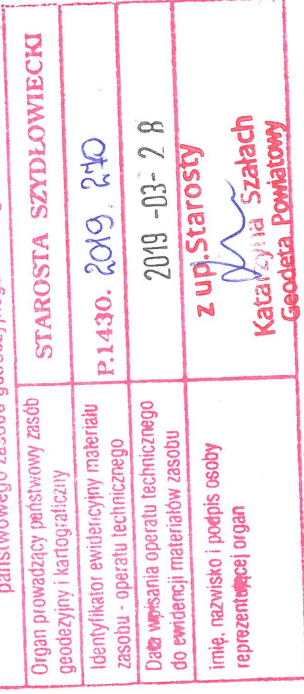 państwowego zasobu geodezyjnego
Organ prowadzący państwowy zasób
geodezyjny i kartograficzny
STAROSTA SZYDŁOWIECKI
Identyfikator ewidencyjny materiału
zasobu - operatu technicznego
P.1430. 2019. 270
Data wpisania operatu technicznego
do ewidencji materiałów zasobu
2019 -03- 2 8
imię, nazwisko i podpis osoby
reprezentującej organ
z up.Starosty
Katarzyna Szałach
Geodeta Powiatowy